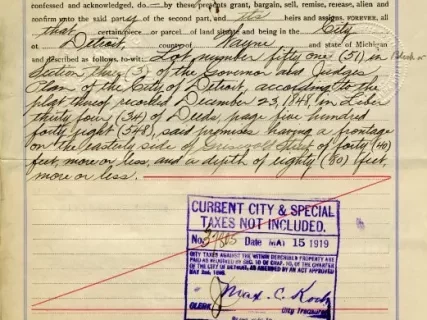 confessed and acknowledged, do by these presents grant, bargain, sell, remise, release, alien and
confirm unto the said party of the second part, and its heirs and assigns, FOREVER, all
that certain piece or parcel of land situate and being in the City
of Detroit, county of Wayne and state of Michigan
and described as follows, to-wit: Lot number fifty one (51) in
Section three (3) of the Governor and Judges
Plan of the City of Detroit, according to the
plat thereof recorded December 23, 1848, in Liber
thirty four (34) of Deeds, page five hundred
forty eight (548), said premises having a frontage
on the easterly side of Griswold Street of forty (40)
feet, more or less, and a depth of eighty (80) feet,
more or less.
CURRENT CITY & SPECIAL
TAXES NOT INCLUDED.
No. Date MAY 15 1919
CITY TAXES AGAINST THE WITHIN DESCRIBED PROPERTY ARE
PAID AS REQUIRED BY SEC. OF CHAP. OF THE CHARTER
OF THE CITY OF DETROIT, AS AMENDED BY AN ACT APPROVED
Max. C. Koch
CLERK City Treasurer